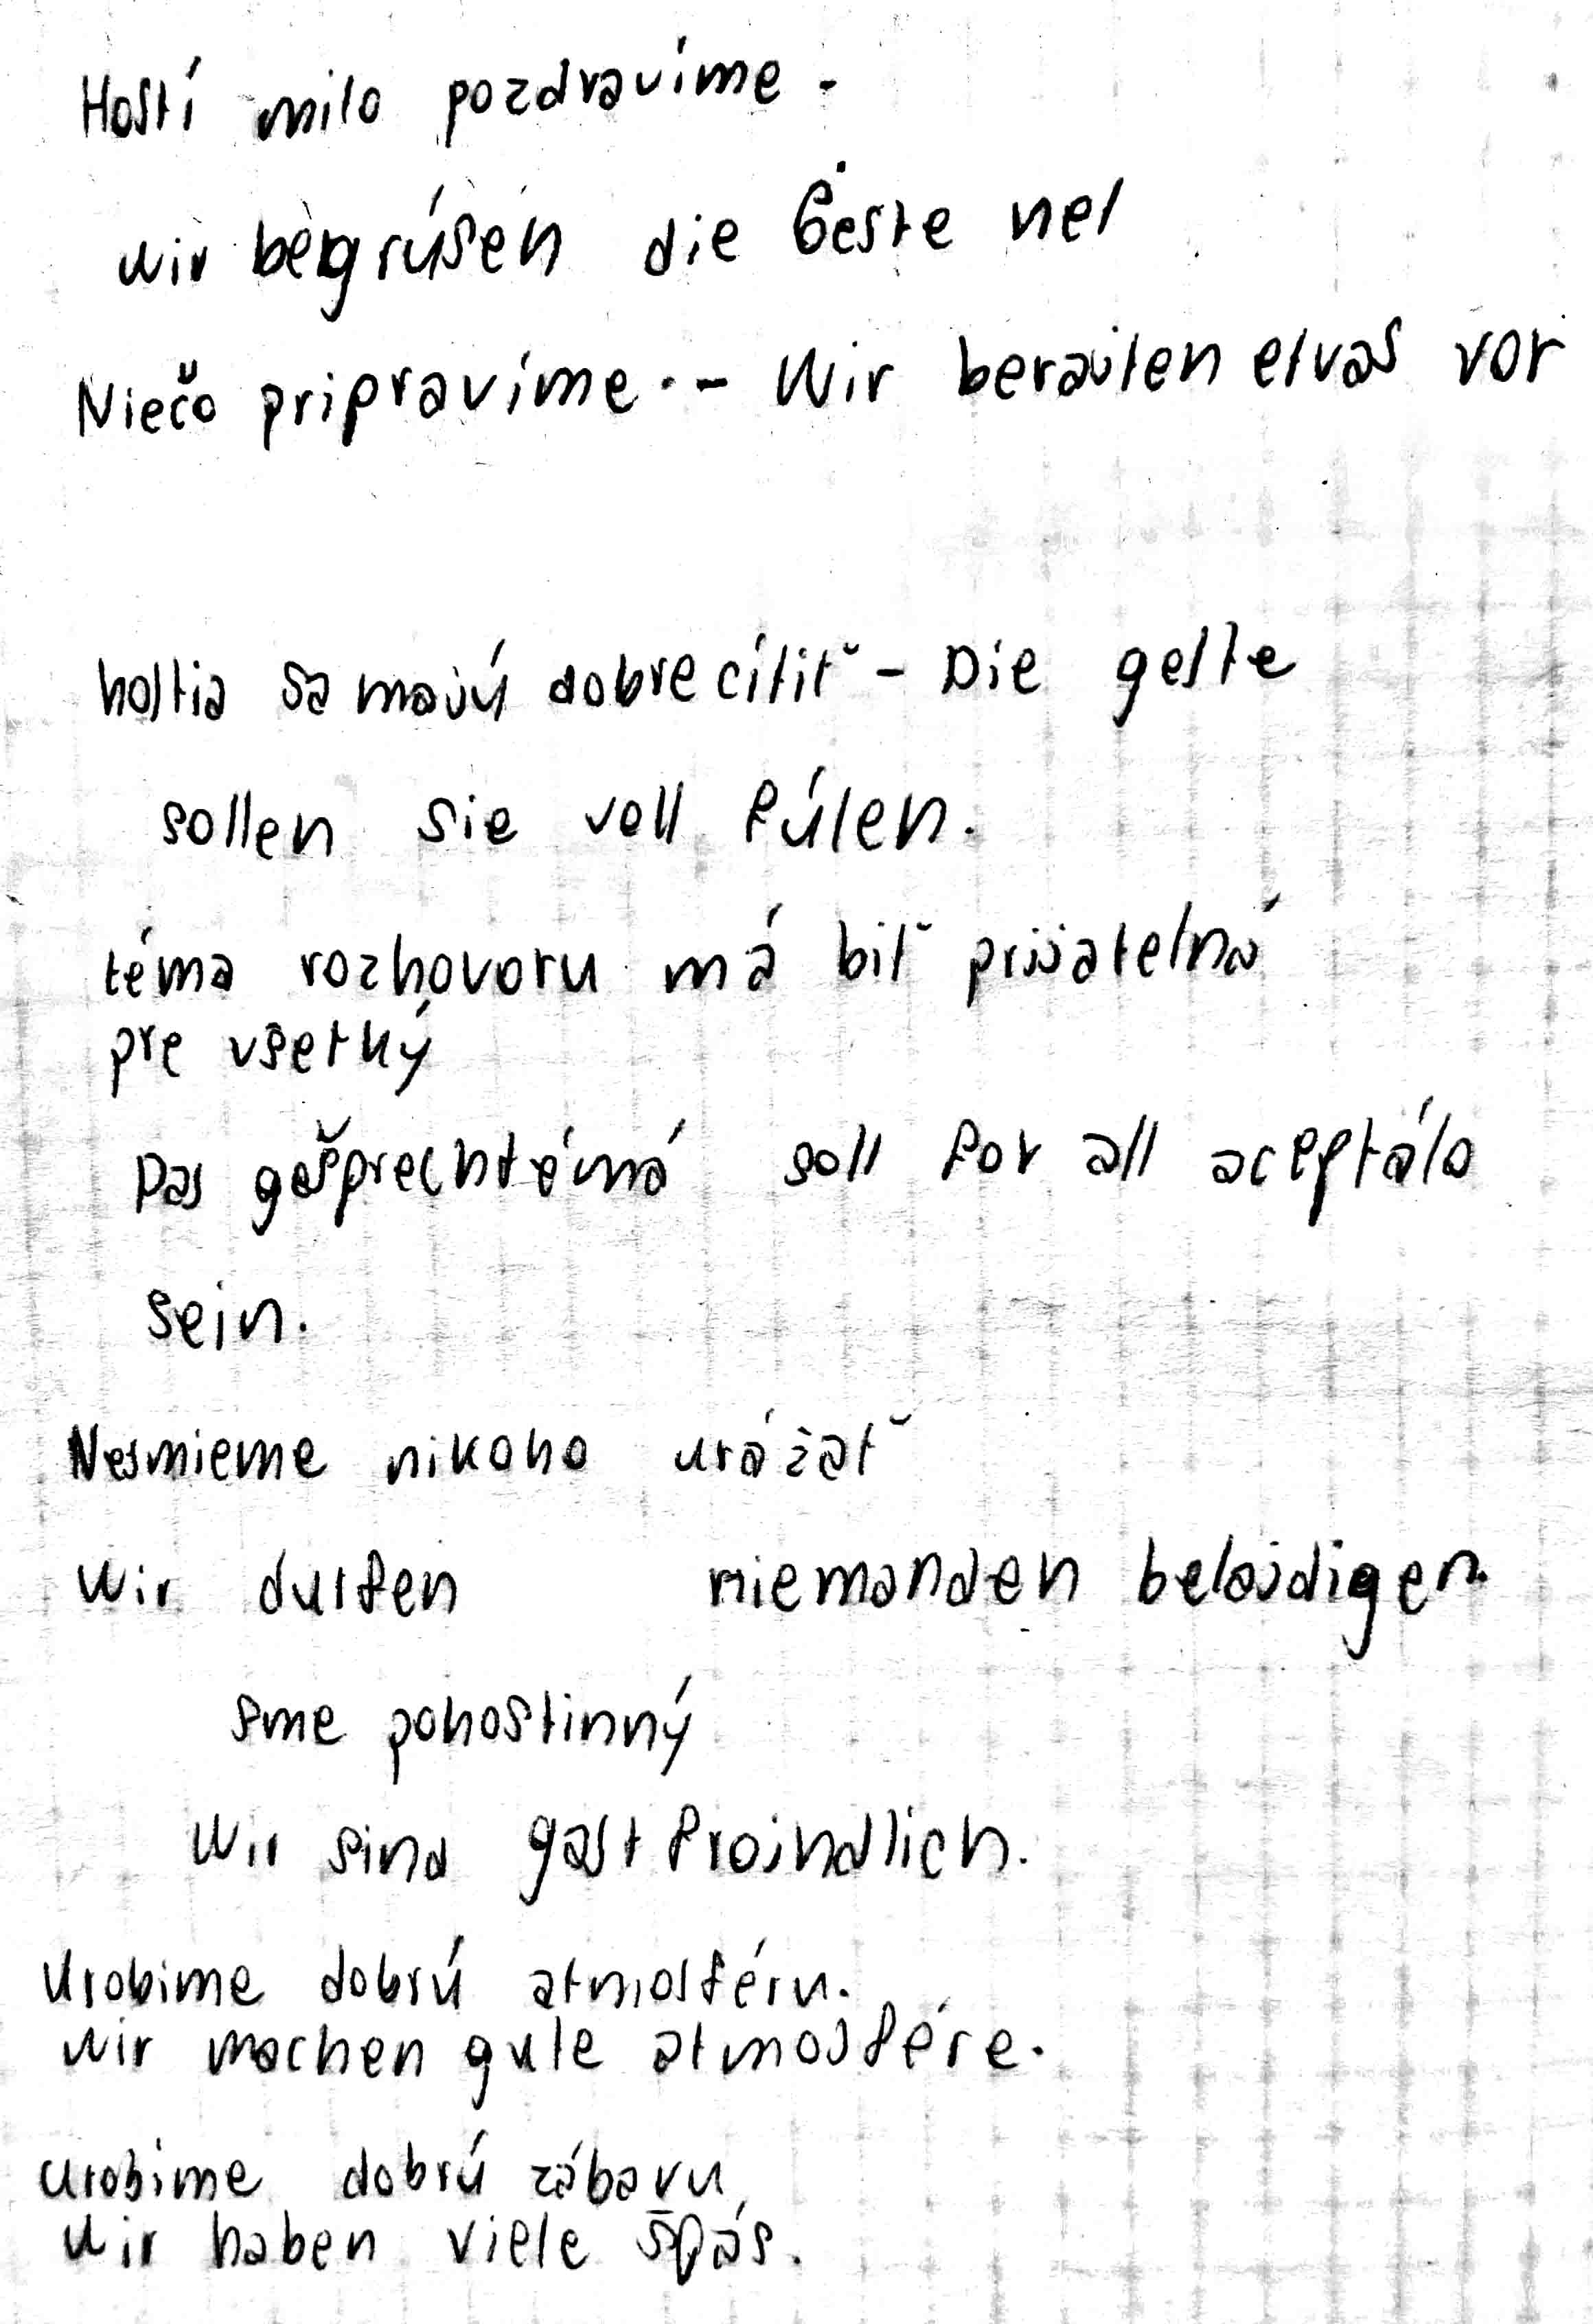 Hostí milo pozdravíme -
Wir begrúsen die Geste net
Niečo pripravíme. - Wir beraiten etvas vor
hostia sa majú dobre cítiť - Die geste
sollen sie voll fúlen.
téma rozhovoru má biť prijatelná
pre všetký
Das gešprechtémá soll for all aceptálo
sein.
Nesmieme nikoho urážať
Wir durfen niemanden belajdigen.
sme pohostinný
Wir sind gast frojndlich.
Urobime dobrú atmosféru.
Wir machen gute atmosfére.
Urobime dobrú zábavu
Wir haben viele špás.